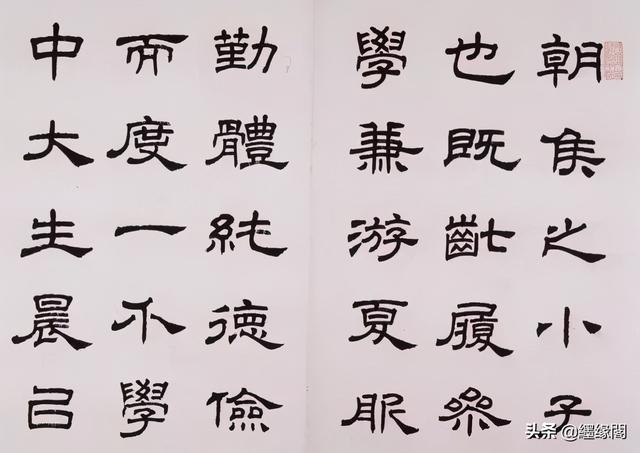 朝侯之小子
也既齔履參
學兼游夏服
勤體純德儉
而度一不學
中大生晨㠯
头条 @缘閣